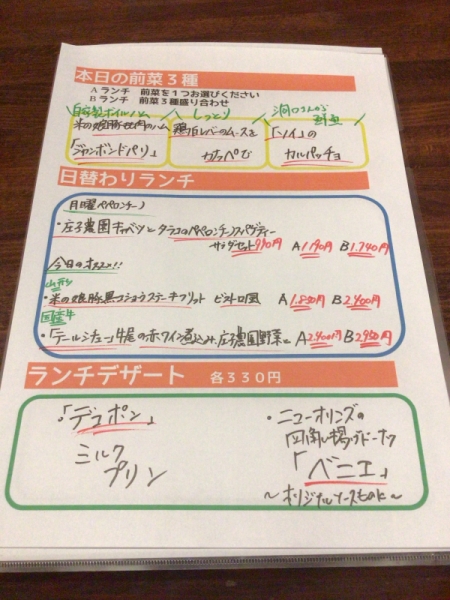 本日の前菜3種
Aランチ 前菜を1つお選びください
Bランチ 前菜3種盛り合わせ
自家製ボイルハム
しっとり
米の娘豚モモ肉のハム
鶏白レバーのムースを
「ソイ」の
「ジャンボンドパリ」
カナッペで
カルパッチョ
日替わりランチ
月曜ペペロンチーノ
・庄子農園キャベツとタラコのペペロンチーノスパゲティー
サラダセット990円 A1190円 B1,740円
今日のオススメ!!
山形
・米の娘豚黒コショウステーキフリット ビストロ風 A1,850円 B2,400円
国産牛
・「テールシチュー」牛尾の赤ワイン煮込み、庄子農園野菜と A2400円 B2950円
ランチデザート 各330円
・「デコポン」
ミルク
プリン
・ニューオリンズの
四角い揚げドーナツ
「ベニエ」
〜オリジナルソースものに〜